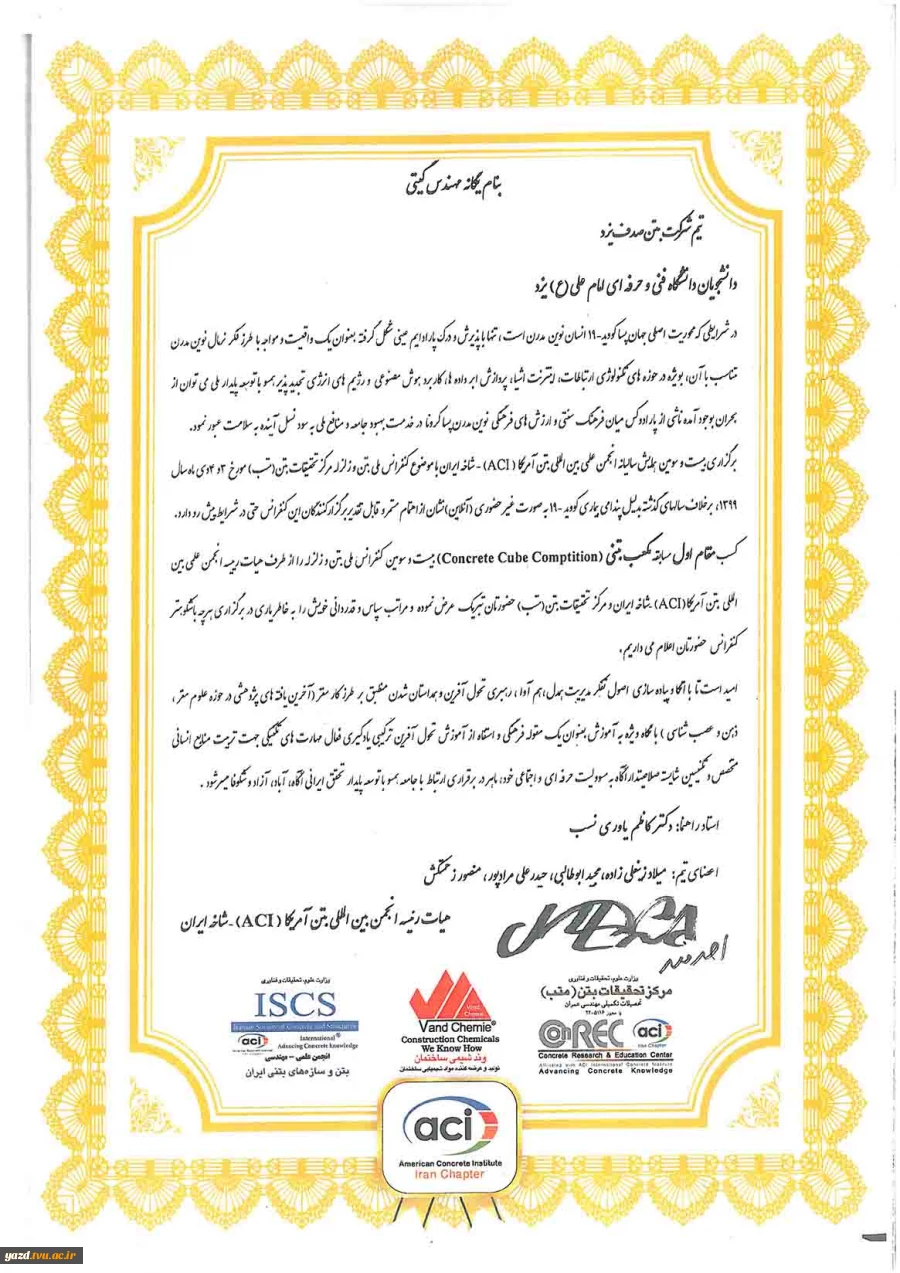 بنام یگانه مهندس گیتی
تیم شرکت بتن صدف یزد
دانشجویان دانشگاه فنی و حرفه ای امام علی (ع) یزد
در شرایطی که محوریت اصلی جهان پسا کووید-۱۹ انسان نوین مدرن است، تنها با پذیرش و درک پارادایم عینی شکل گرفته بعنوان یک واقعیت و مواجه با طرز فکر نرمال نوین مدرن
متناسب با آن، بویژه در حوزه های تکنولوژی ارتباطات، اینترنت اشیا، پردازش ابر داده ها، کاربرد هوش مصنوعی و رژیم های انرژی تجدید پذیر همسو با توسعه پایدار ملی می توان از
بحران بوجود آمده ناشی از پارادکس میان فرهنگ سنتی و ارزش های فرهنگی نوین مدرن پسا کرونا در خدمت بهبود جامعه و منافع ملی به سود نسل آینده به سلامت عبور نمود.
برگزاری بیست و سومین همایش سالیانه انجمن علمی بین المللی بتن آمریکا (ACI) - شاخه ایران با موضوع کنفرانس ملی بتن و زلزله مرکز تحقیقات بتن (متب) مورخ ۳ و ۴ دی ماه سال
۱۳۹۹، برخلاف سالهای گذشته بدلیل پندامی بیماری کووید -۱۹ به صورت غیر حضوری (آنلاین) نشان از اهتمام مستمر و قابل تقدیر برگزار کنندگان این کنفرانس حتی در شرایط پیش رو دارد.
کسب مقام اول مسابقه مکعب بتنی (Concrete Cube Comptition) بیست و سومین کنفرانس ملی بتن و زلزله را از طرف هیات رییسه انجمن علمی بین
المللی بتن آمریکا (ACI) شاخه ایران و مرکز تحقیقات بتن (متب) حضورتان تبریک عرض نموده و مراتب سپاس و قدردانی خویش را به خاطر یاری در برگزاری هرچه باشکوهتر
کنفرانس حضورتان اعلام می داریم.
امید است تا با اتکا و پیاده سازی اصول تفکر مدیریت همدل، هم آوا، رهبری تحول آفرین و همداستان شدن منطبق بر طرز کار مغز (آخرین یافته های پژوهشی در حوزه علوم مغز،
ذهن و عصب شناسی) با نگاه ویژه به آموزش بعنوان یک مقوله فرهنگی و استفاده از آموزش تحول آفرین ترکیبی یادگیری فعال مهارت های تکنیکی جهت تربیت منابع انسانی
متخصص و تکنیسین شایسته صلاحیتدار آگاه به مسوولیت حرفه ای و اجتماعی خود، ماهر در برقراری ارتباط با جامعه همسو با توسعه پایدار تحقق ایرانی آگاه، آباد، آزاد و شکوفا میسر شود.
استاد راهنما: دکتر کاظم یاوری نسب
اعضای تیم: میلاد زینعلی زاده، مجید ابوطالبی، حیدر علی مرادپور، منصور زحمتکش
هیات رئیسه انجمن بین المللی بتن آمریکا (ACI)- شاخه ایران
وزارت علوم، تحقیقات و فناوری
مرکز تحقیقات بتن (متب)
تحصیلات تکمیلی مهندسی عمران
ConREC
aci
Iran Chapter
Concrete Research & Education Center
Affiliated with ACI International Concrete Institute
Advancing Concrete Knowledge
Vand Chemie
Vand Chemie®
Construction Chemicals
We Know How
وند شیمی ساختمان
تولید و عرضه کننده مواد شیمیایی ساختمان
وزارت علوم، تحقیقات و فناوری
ISCS
Iranian Society of Concrete and Structures
aci International®
Advancing Concrete Knowledge
انجمن علمی - مهندسی
بتن و سازه‌های بتنی ایران
aci
American Concrete Institute
Iran Chapter
yazd.tvu.ac.ir